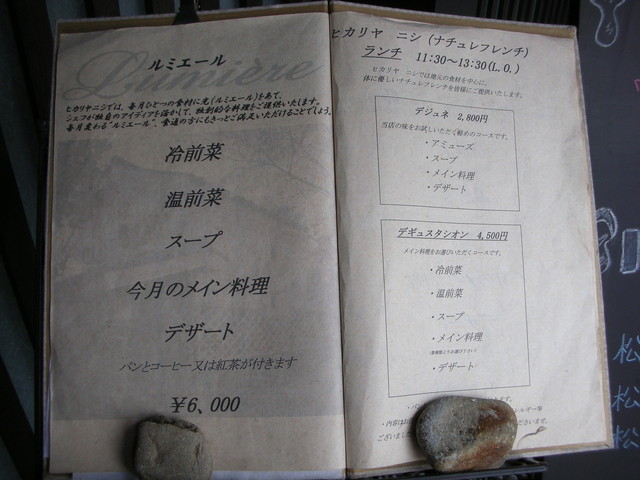 ルミエール
Lumière
ヒカリヤニシでは、毎月ひとつの食材に光(ルミエール)をあて、
シェフが独自のアイディアを活かして、独創的な料理をご提供いたします。
毎月変わる"ルミエール"、食通の方にもきっとご満足いただけることでしょう。
冷前菜
温前菜
スープ
今月のメイン料理
デザート
パンとコーヒー又は紅茶が付きます
￥6、000
ヒカリヤ ニシ(ナチュレフレンチ)
ランチ 11:30～13:30(L.O.)
ヒカリヤ ニシでは地元の食材を中心に、
体に優しいナチュレフレンチを皆様にご提供いたします。
デジュネ 2,800円
当店の味をお試しいただく軽めのコースです。
・アミューズ
・スープ
・メイン料理
・デザート
デギュスタシオン 4,500円
メイン料理をお選びいただくコースです。
・冷前菜
・温前菜
・スープ
・メイン料理
・デザート
・パン
・内容はお
ございまし
松
松
松